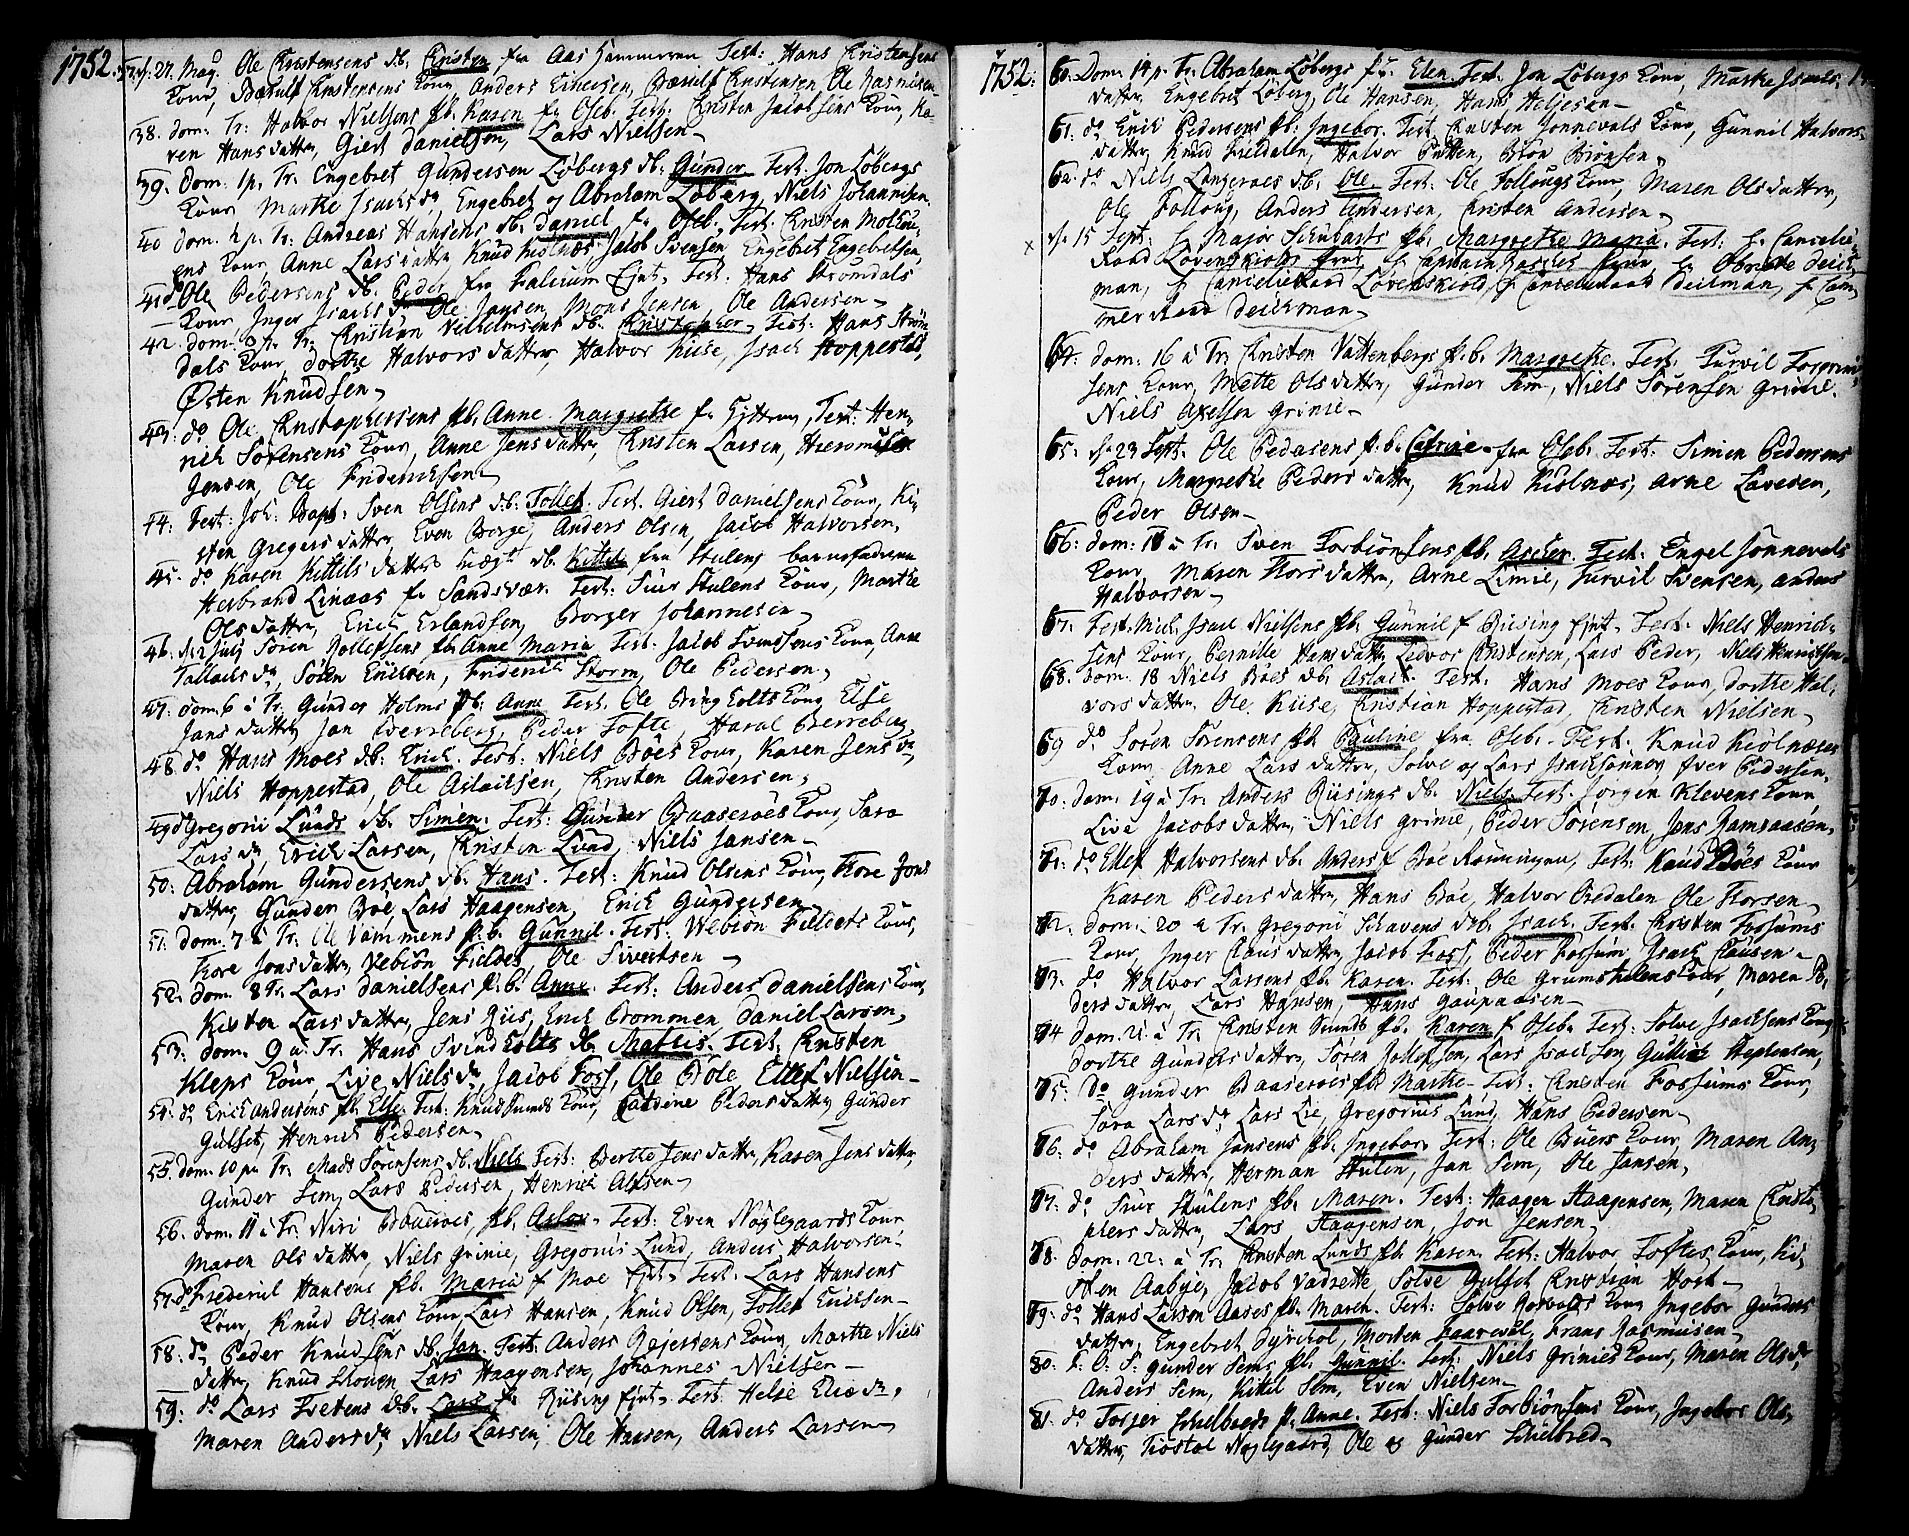 1752.
37. d. 27. Maj. Ole Christensens db. Christen fra Aas Hammeren Test: Hans Christensens
Kone, Anders Ericsen, Bærulf Christensen, Ole Rasmusen
38. dom: Tr: Halvor Nielsens pb. Karen fr Oseb. Test: Cristen Jacobsens Kone, Ka-
ren Hansdatter, Giert Danielsen, Lars Nielsen
39. Dom. 1 p. Tr: Engebret Gundersen Löbergs db. Gunder. Test. Jon Löbergs
Kone Marthe Isachsdr, Engebret og Abraham Löberg, Niels Johannesen
40 dom. 2 p. Tr: Andreas Hansens db. Daniel fr Oseb. Test. Cristen
ens Kone, Anne Larsdatter Knud Kiölnæs Jacob Svensen Engebret Engebretsen
41 do Ole Pedersens db. Peder fra Falcum Ejet. Test. Hans Strömdals
Kone, Inger Isachsdr Ole Jansen, Mons Jensen, Ole Andersen
42. dom. 3 p. Tr: Cristian Velhelmsens db. Cristopher. Test: Hans Ström
dals Kone, Dorthe Halvorsdatter, Halvor Kiise, Isach Hoppestad,
Østen Knudsen
43. do Ole Cristophersens pb. Anne Margrethe fr Test: Hen-
rich Sörensens Kone, Anne Jensdatter, Cristen Larsen,
Jensen, Ole Friderichsen
44. Fest: Joh: Bapt: Sven Olsens db. Tollef. Test. Giert Danielsens Kone, Ki-
sten Gregersdatter, Even Borge, Anders Olsen, Jacob Halvorsen,
45. do Karen Kittilsdatters uægt db. Kittil fra Hulens barnefaderen
Herbrand Linaas fr Sandsvær. Test: Siur Hulens Kone, Marthe
Olsdatter, Erich Erlandsen, Borger Johannesen
46. d. 2 Julj Sören Rollefsens pb. Anne Maria. Test. Jacob Svensens Kone, Anne
Tallachsdr, Sören Ericksen, Friderich Storm, Ole Pedersen,
47. dom. 6 à Tr: Gunder Holms pb. Anne. Test. Ole Kone Else
Jansdatter, Jan Berreberg, Peder Tofte, Haral Berreberg
48. do Hans Moes db. Erich. Test: Niels Böes Kone, Karen Jensdr,
Niels Hoppestad, Ole Aslachsen, Cristen Andersen,
49 do Gregorii Lunds db. Simen. Test: Gunder Baaseröes Kone, Sara
Larsdr, Erich Larsen, Cristen Lund, Niels Jansen
50: Abraham Gundersens db. Hans. Test: Knud Olsens Kone, Thore Jons
datter, Gunder Böe, Lars Haagensen, Erich Gundersen
51. Dom. 7 à Tr: Ole Vammens p.b. Gunnil. Test. Vebion Fieldets Kone,
Thore Jonsdatter, Vebion Fieldet, Ole Sivertsen
52. Dom. 8 Tr: Lars Danielsens p.b. Anne. Test: Anders Danielsens Kone,
Kirsten Larsdatter, Jens Riis, Erich Brommen, Daniel Larsen,
53. dom. 9 a: Tr. Hans Svindholts db. Mattis. Test. Cristen
Kleps Kone, Live Nielsdr, Jacob Foss, Ole Bole, Ellef Nielsen
54. do Erich Andersens pb. Else. Test: Knud Sunds Kone, Catrine Pedersdatter Gunder
Gulset, Henrich Pedersen
55. dom. 10 p: Tr: Mads Sörensens db. Niels Test: Berthe Jensdatter, Karen Jensdatter,
Gunder Sem, Lars Pedersen, Henrich Alfsen
56. dom. 11 à Tr: Niri Bauerøes, pb. Aslov. Test: Even Nøglegaards Kone
Maren Olsdatter, Niels Grinie, Gregoriis Lund, Anders Halvorsen.
57. do Frederich Hansens pb. Maria fr Moe Ejet. Test. Lars Hansens
Kone, Knud Olsens Kone, Lars Hansen, Knud Olsen, Tollef Ericsen
58. do Peder Knudsens db. Jan. Test. Anders Rejersens Kone, Marthe Niels
datter, Knud Skougen Lars Haagensen, Johannes Nielsen
59. do Lars Tvetens db. Lars fr Riising Ejet. Test. Helje Eliædr,
Maren Andersdr, Niels Larsen, Ole Hansen, Anders Larsen
1752.
60. Dom: 14 p. Tr: Abraham Löbergs pb: Elen. Test. Jon Löbergs Kone, Marthe Isachs
datter, Engebret Löberg, Ole Hansen, Hans Heljesen
61. do Erich Pedersens pb: Ingebor. Test. Cristen Jonnevals Kone, Gunnil Halvors
datter, Knud Fieldalen, Halvor Putten, Biön Biönsen
62. do Niels Langeroes db. Ole. Test: Ole Follougs Kone, Maren Olsdatter,
Ole Folloug, Anders Andersen, Cristen Andersen
x d. 15 Sept: hr Major Schubarts pb. Margrethe Maria. Test: hr Cancelie
Raad Lövenskiolds frue, hr Captain frue, hr Obriste Deich
man, hr Cancelieraad Løvenskiold, hr Cancelieraad Deichman, hr Cam
mer Raad Deichman
64. Dom: 16 à Tr: Cristen Vattenbergs p.b. Margrethe. Test. Turvil
sens Kone, Mette Olsdatter, Gunder Sem, Niels Sörensen Grinie.
Niels Axelsen Grinie
65. d. 23 Sept. Ole Pedersens p.b. Catrine fra Oseb. Test. Simen Pedersens
Kone, Margrethe Pedersdatter, Knud Kiölnæs, Arne Lavesen,
Peder Olsen
66. Dom: 18 à Tr. Sven Torbiönsens pb. Ascher. Test. Engel Jonnevals
Kone, Maren Thorsdatter, Arne Limie, Turvil Svensen, Anders
Halvorsen
67. Fest. Mich. Isach Nielsens pb. Gunnil fr Riising Ejet. Test. Niels Henrich-
sens Kone, Pernille Hansdatter Ledvor Cristensen, Lars Peder, Niels Henrichsen
68. Dom. 18 Niels Böes db. Aslack. Test. Hans Moes Kone, Dorthe Hal-
vorsdatter, Ole Kiise, Cristian Hoppestad, Cristen Nielsen
69 do Sören Sörensens pb. Pauline fra Oseb. Test. Knud Kiölnæses
Kone Anne Larsdatter, Solve og Lars Isachsönner, Iver Pedersen.
70. Dom. 19 à Tr: Anders Riisings db. Niels. Test. Jörgen Klevens Kone,
Live Jacobsdatter, Niels Grinie, Peder Sörensen, Jens Ramsaasen.
71. do Ellef Halvorsens db. Anders fr Böe Rönningen, Test: Knud Böes Kone
Karen Pedersdatter, Hans Böe, Halvor Bredalen Ole Thorsen
72. Dom: 20 a Tr: Gregorii Skavens db. Isach. Test. Cristen Fossums
Kone, Inger Clausdatter, Jacob Foss, Peder Fossum, Isach Clausen
73. do Halvor Larsens pb. Karen. Test. Ole Grumshulens Kone, Maren Pe
dersdatter, Lars Hansen, Hans Gaupaasen
74 Dom. 21 à Tr: Cristen Sunds pb. Karen fr Oseb. Test: Solve Isachsens Kone
Dorthe Gundersdatter, Sören Jollefsen, Lars Isachsen, Gullich Stephensen,
75. do Gunder Baaseroes pb. Marthe. Test. Cristen Fossums Kone,
Sara Larsdr, Lars Lie, Gregorius Lund, Hans Pedersen
76. do Abraham Jansens pb. Ingebor. Test: Ole Buers Kone, Maren An,
dersdatter, Herman Hulen, Jan Sem, Ole Jansen,
77. do Siur Hulens pb. Maren. Test: Haagen Haagensen, Maren Cristo,
phersdatter, Lars Haagensen, Jon Jensen
78. Dom. 22. à Tr. Cristen Lunds pb. Karen. Test: Halvor Toftes Kone, Ki,
sten Aabye, Jacob Vadrette, Solve Gulset Cristian Hoch
79. do Hans Larsen Aases pb. Maren. Test: Solve Kone, Ingebor Gunders
datter, Engebret Dyrchol, Morten Faarevel, Frans Rasmusen
80. F. O. S. Gunder Sems pb. Gunnil. Test: Niels Grinies Kone, Maren Olsdr,
Anders Sem, Kittil Sem, Even Nielsen
81. do Torger Schelbreds p. Anne. Test: Niels Torbiönsens Kone, Ingebor Ols,
datter, Tiöstol Nøglegaard, Ole og Gunder Schelbred